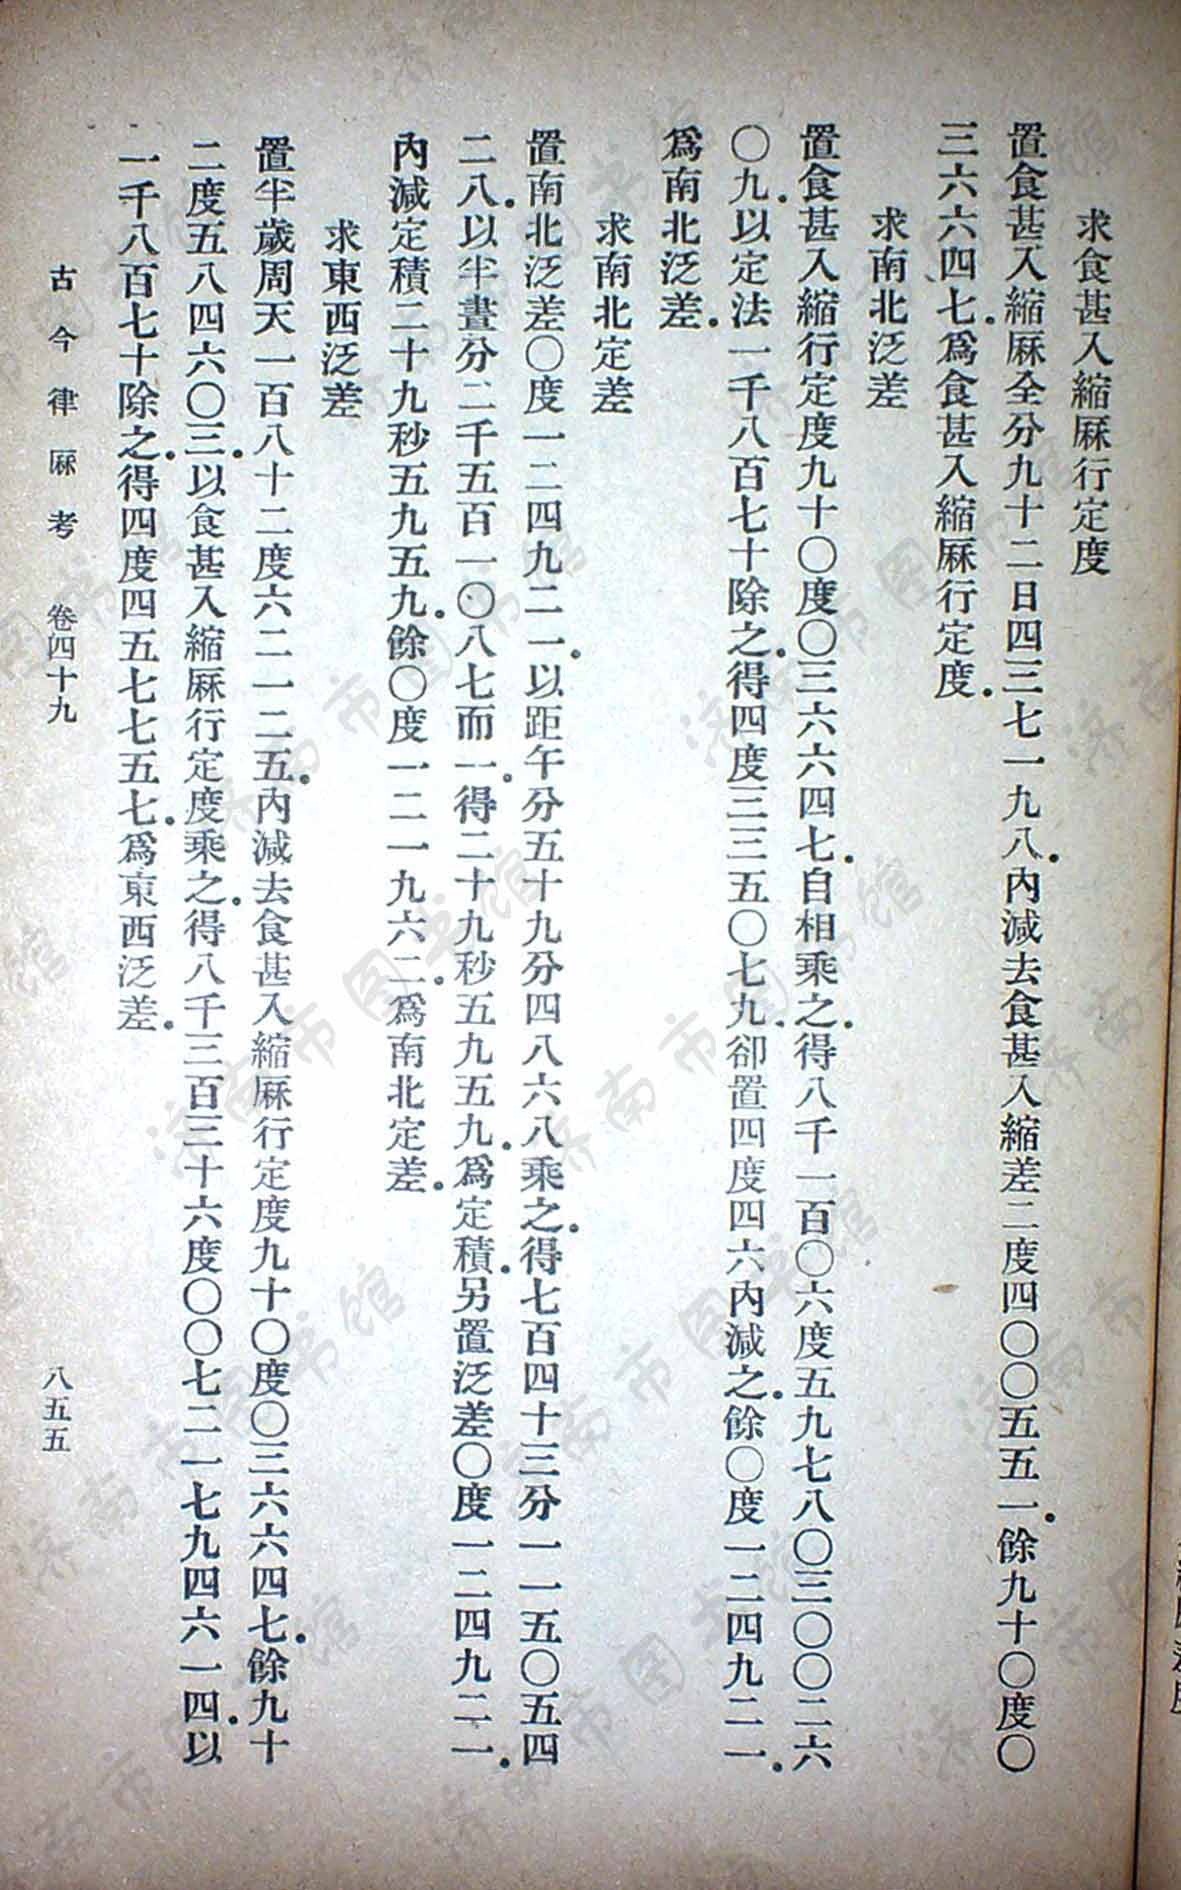 求食甚入縮厤行定度
置食甚入縮厤全分九十二日四三七一九八內減去食甚入縮差二度四〇〇五五一餘九十〇度〇
三六六四七爲食甚入縮厤行定度
求南北泛差
置食甚入縮行定度九十〇度〇三六六四七自相乘之得八千一百〇六度五九七八〇三〇〇二六
〇九以定法一千八百七十除之得四度三三五〇七九卻置四度四六內減之餘〇度一二四九二一
爲南北泛差
求南北定差
置南北泛差〇度一二四九二一以距午分五十九分四八六八乘之得七百四十三分一一五〇五四
二八以半晝分二千五百一〇八七而一得二十九秒五九五九爲定積另置泛差〇度一二四九二一
內減定積二十九秒五九五九餘〇度一二一九六二爲南北定差
求東西泛差
置半歲周天一百八十二度六二一二五內減去食甚入縮厤行定度九十〇度〇三六六四七餘九十
二度五八四六〇三以食甚入縮厤行定度乘之得八千三百三十六度〇〇七二一七九四六一四以
一千八百七十除之得四度四五七七五七爲東西泛差
古今律厤考 卷四十九 八五五
济南市图书馆